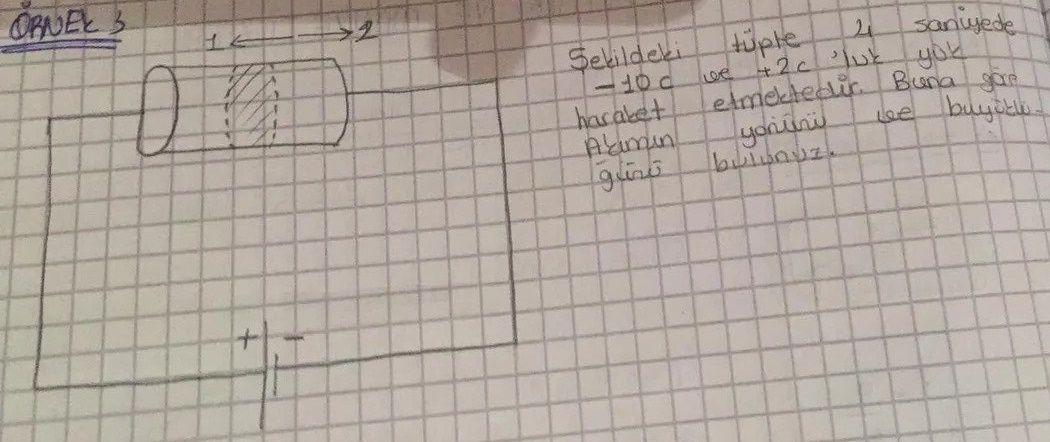 ÖRNEK 3
1 2
Şekildeki tüpte 4 saniyede
-10c ve +2c 'luk yük
haraket etmektedir. Buna göre
Akımın yönünü ve büyüklü-
ğünü bulunuz.
+ -